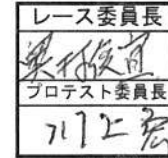 レース委員長
奥村俊宣
プロテスト委員長
川上宏